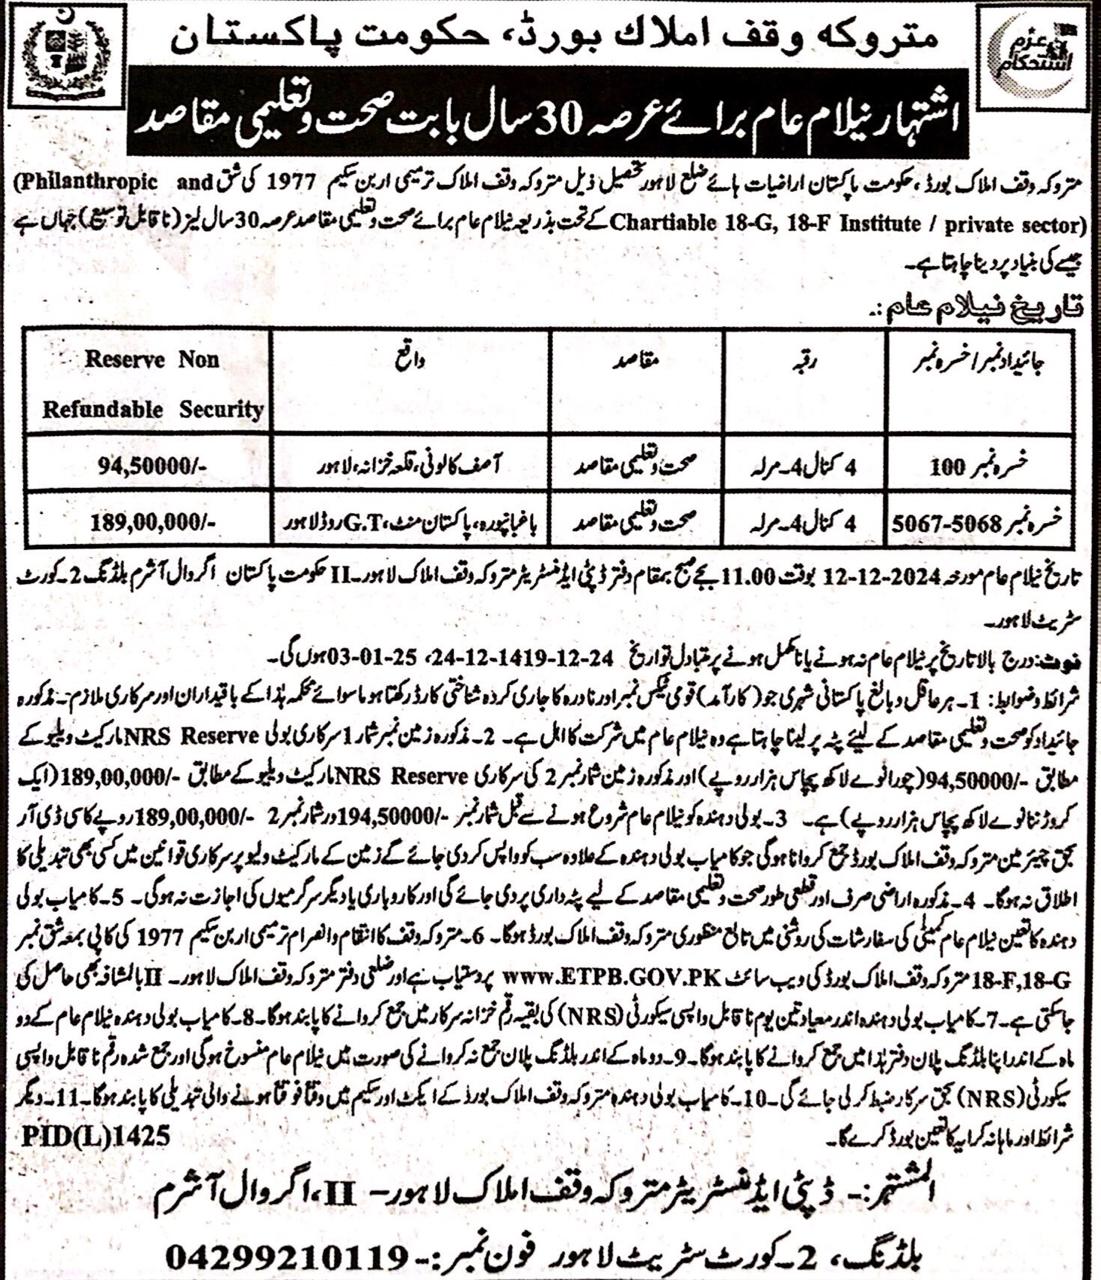 عزم
استحکام
متروکہ وقف املاک بورڈ، حکومت پاکستان
اشتہار نیلام عام برائے عرصہ 30 سال بابت صحت و تعلیمی مقاصد
متروکہ وقف املاک بورڈ، حکومت پاکستان اراضیات ہائے ضلع لاہور تحصیل ذیل متروکہ وقف املاک ترمیمی اربن سکیم 1977 کی شق (Philanthropic and
Chartiable 18-G, 18-F Institute / private sector) کے تحت بذریعہ نیلام عام برائے صحت و تعلیمی مقاصد عرصہ 30 سال لیز (ناقابل توسیع) جہاں ہے
جیسے کی بنیاد پر دینا چاہتا ہے۔
تاریخ نیلام عام:۔
جائیداد نمبر / خسرہ نمبر | رقبہ | مقاصد | واقع | Reserve Non
Refundable Security
خسرہ نمبر 100 | 4 کنال 4۔ مرلہ | صحت و تعلیمی مقاصد | آصف کالونی، قلعہ خزانہ، لاہور | 94,50000/-
خسرہ نمبر 5067-5068 | 4 کنال 4۔ مرلہ | صحت و تعلیمی مقاصد | باغبانپورہ، پاکستان منٹ، G.T روڈ لاہور | 189,00,000/-
تاریخ نیلام عام مورخہ 12-12-2024 بوقت 11.00 بجے صبح بمقام دفتر ڈپٹی ایڈمنسٹریٹر متروکہ وقف املاک لاہور۔ II حکومت پاکستان اگروال آشرم بلڈنگ 2۔ کورٹ
سٹریٹ لاہور۔
نوٹ: درج بالا تاریخ پر نیلام عام نہ ہونے یا نا مکمل ہونے پر متبادل تواریخ 24-12-1419-12-24، 03-01-25 ہوں گی۔
شرائط و ضوابط: 1۔ ہر عاقل و بالغ پاکستانی شہری جو (کارآمد) قومی ٹیکس نمبر اور نادرہ کا جاری کردہ شناختی کارڈ رکھتا ہو ماسوائے محکمہ ہذا کے باقیداران اور سرکاری ملازم۔ مذکورہ
جائیداد کو صحت و تعلیمی مقاصد کے لیئے پٹہ پر لینا چاہتا ہے وہ نیلام عام میں شرکت کا اہل ہے۔ 2۔ مذکورہ زمین نمبر شمار 1 سرکاری بولی NRS Reserve مارکیٹ ویلیو کے
مطابق -/94,50000 (چورانوے لاکھ پچاس ہزار روپے) اور مذکورہ زمین شمار نمبر 2 کی سرکاری NRS Reserve مارکیٹ ویلیو کے مطابق -/189,00,000 (ایک
کروڑ ننانوے لاکھ پچاس ہزار روپے) ہے۔ 3۔ بولی دہندہ کو نیلام عام شروع ہونے سے قبل شمار نمبر -/194,50000 در شمار نمبر 2 -/189,00,000 روپے کا سی ڈی آر
بحق چیئرمین متروکہ وقف املاک بورڈ جمع کروانا ہوگی جو کامیاب بولی دہندہ کے علاوہ سب کو واپس کر دی جائے گے زمین کے مارکیٹ ویلیو پر سرکاری قوانین میں کسی بھی تبدیلی کا
اطلاق نہ ہوگا۔ 4۔ مذکورہ اراضی صرف اور قطعی طور صحت و تعلیمی مقاصد کے لیے پٹہ داری پر دی جائے گی اور کاروباری یا دیگر سرگرمیوں کی اجازت نہ ہوگی۔ 5۔ کامیاب بولی
دہندہ کا تعین نیلام عام کمیٹی کی سفارشات کی روشنی میں تابع منظوری متروکہ وقف املاک بورڈ ہوگا۔ 6۔ متروکہ وقف کا انتقام وانصرام ترمیمی اربن سکیم 1977 کی کاپی بمعہ شق نمبر
18-F,18-G متروکہ وقف املاک بورڈ کی ویب سائٹ www.ETPB.GOV.PK پر دستیاب ہے اور ضلعی دفتر متروکہ وقف املاک لاہور۔ II بالمشافہ بھی حاصل کی
جاسکتی ہے۔ 7۔ کامیاب بولی دہندہ اندر معیاد تین یوم ناقابل واپسی سیکورٹی (NRS) کی بقیہ رقم خزانہ سرکار میں جمع کروانے کا پابند ہوگا۔ 8۔ کامیاب بولی دہندہ نیلام عام کے دو
ماہ کے اندر اپنا بلڈنگ پلان دفتر ہذا میں جمع کروانے کا پابند ہوگا۔ 9۔ دو ماہ کے اندر بلڈنگ پلان جمع نہ کروانے کی صورت میں نیلام عام منسوخ ہوگی اور جمع شدہ رقم ناقابل واپسی
سیکورٹی (NRS) بحق سرکار ضبط کر لی جائے گی۔ 10۔ کامیاب بولی دہندہ متروکہ وقف املاک بورڈ کے ایکٹ اور سکیم میں وقتاً فوقتاً ہونے والی تبدیلی کا پابند ہوگا۔ 11۔ دیگر
شرائط اور ماہانہ کرایہ کا تعین بورڈ کرے گا۔ PID(L)1425
المشتہر:۔ ڈپٹی ایڈمنسٹریٹر متروکہ وقف املاک لاہور۔ II، اگروال آشرم
بلڈنگ، 2۔ کورٹ سٹریٹ لاہور فون نمبر:۔ 04299210119